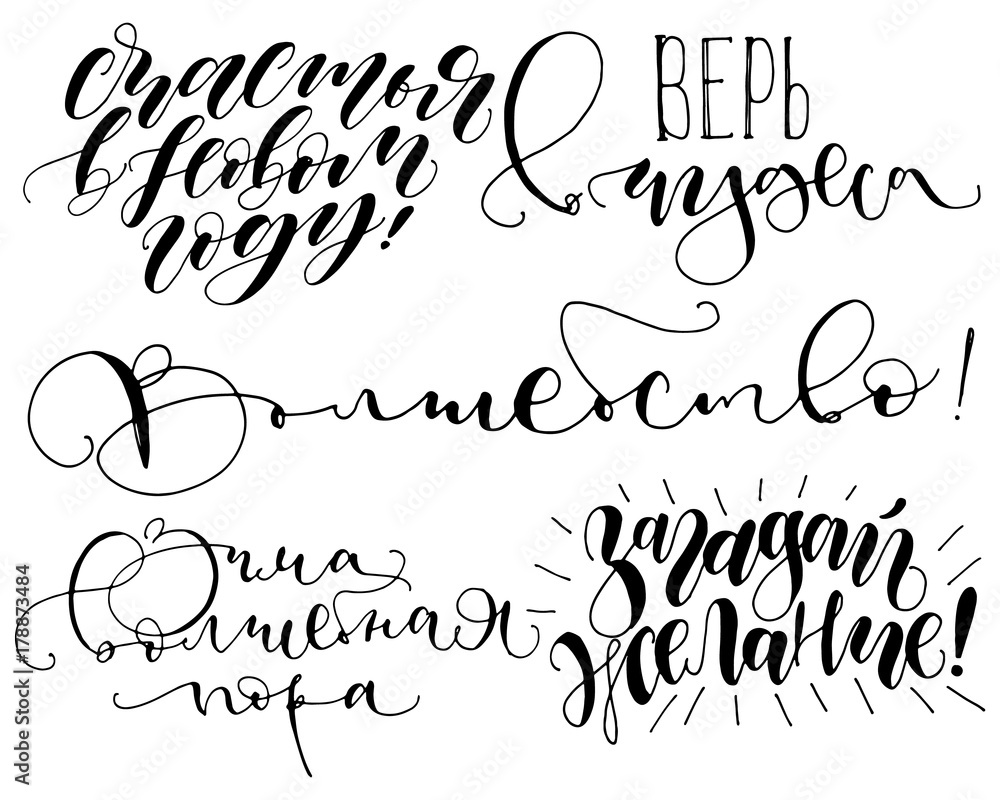 счастья
в новом
году!
ВЕРЬ
в чудеса
Волшебство!
Зима
волшебная
пора
загадай
желание!
Adobe Stock | #178873484